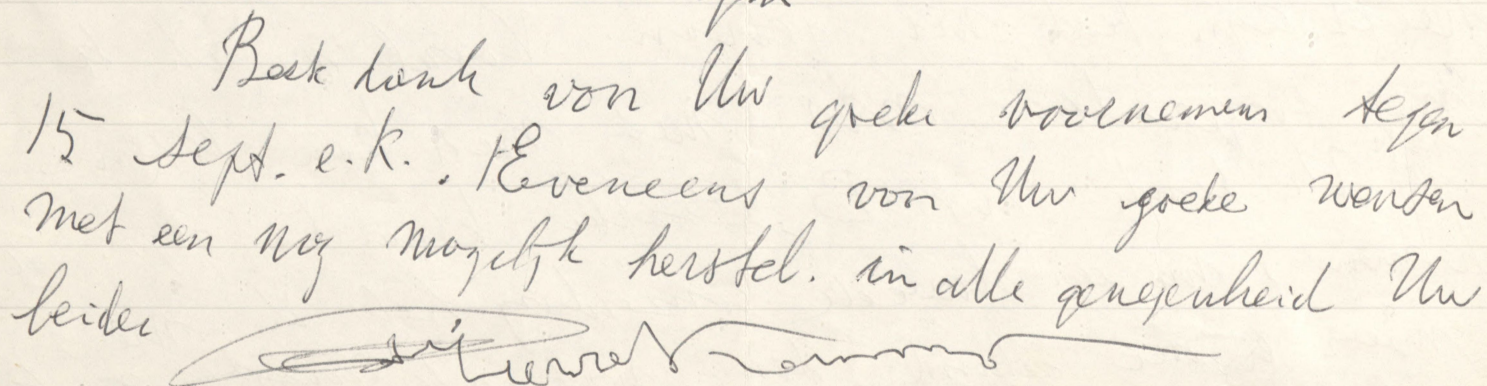 Best dank voor Uw goede voornemens tegen
15 sept. e.k. . Eveneens voor Uw goede wensen
met een nog mogelijk herstel. in alle genegenheid Uw
beider